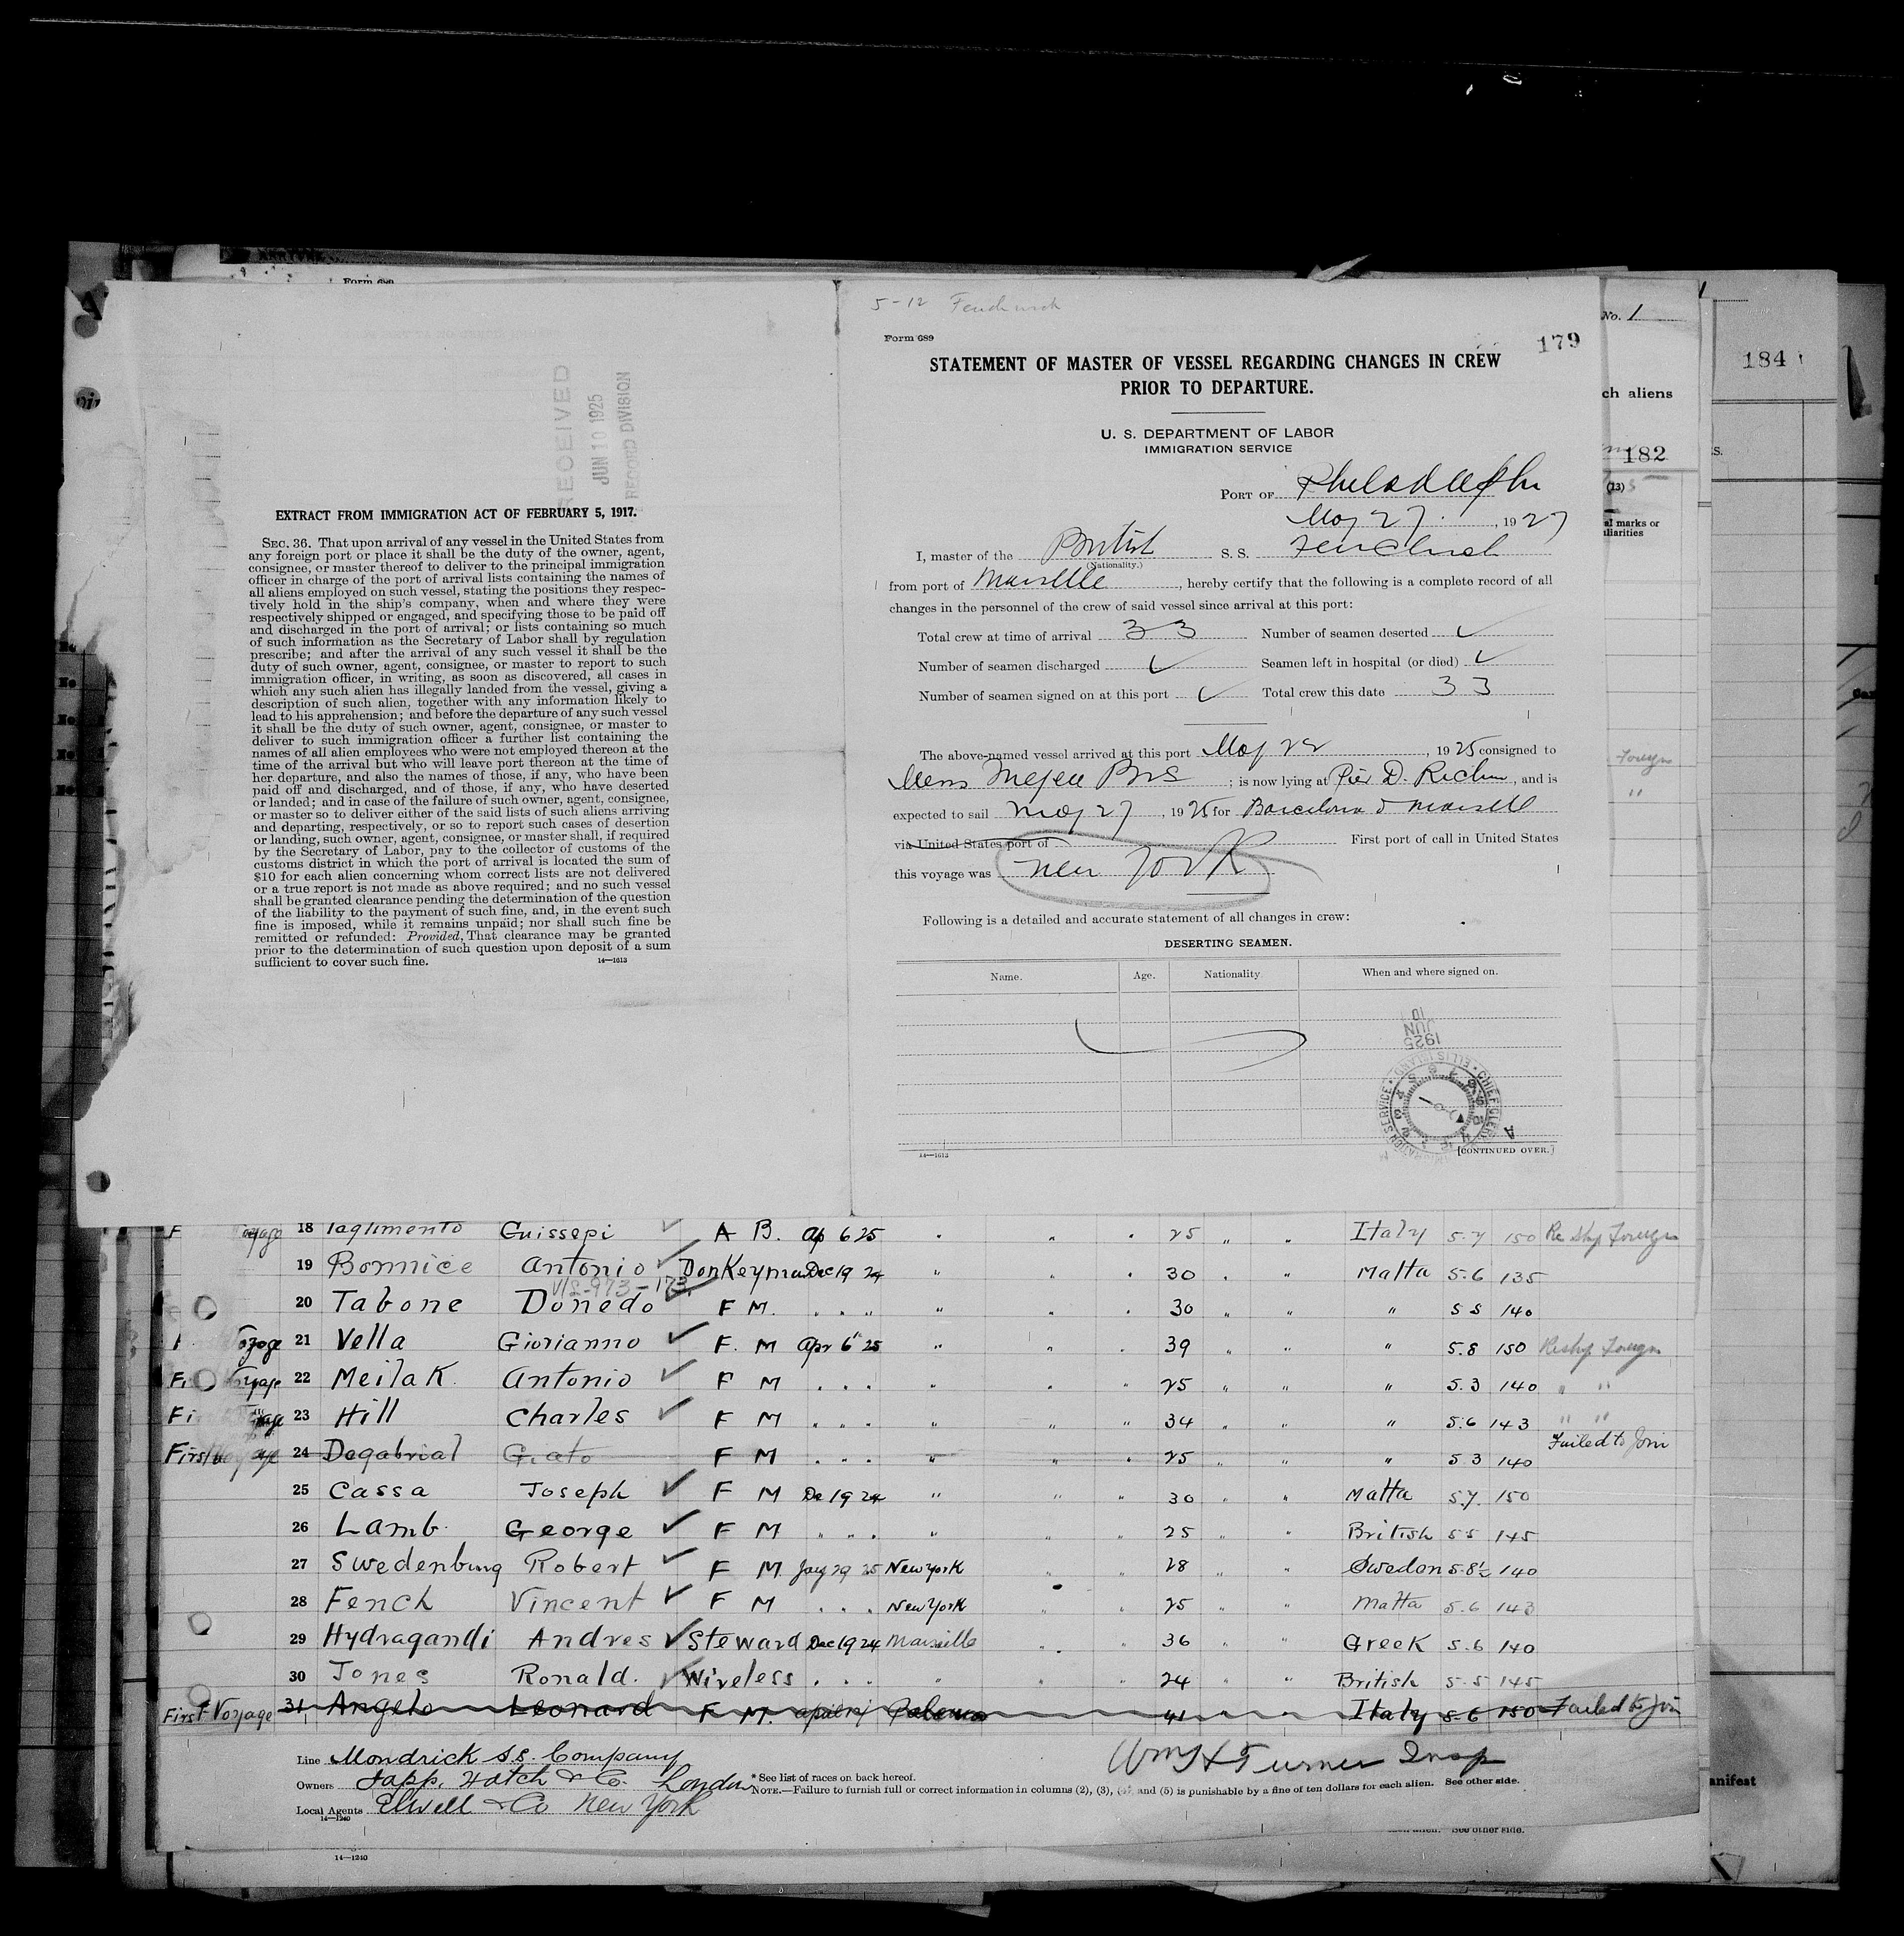 Form 689
RECEIVED
JUN 10 1925
RECORD DIVISION
EXTRACT FROM IMMIGRATION ACT OF FEBRUARY 5, 1917.
SEC. 36. That upon arrival of any vessel in the United States from
any foreign port or place it shall be the duty of the owner, agent,
consignee, or master thereof to deliver to the principal immigration
officer in charge of the port of arrival lists containing the names of
all aliens employed on such vessel, stating the positions they respec-
tively hold in the ship's company, when and where they were
respectively shipped or engaged, and specifying those to be paid off
and discharged in the port of arrival; or lists containing so much
of such information as the Secretary of Labor shall by regulation
prescribe; and after the arrival of any such vessel it shall be the
duty of such owner, agent, consignee, or master to report to such
immigration officer, in writing, as soon as discovered, all cases in
which any such alien has illegally landed from the vessel, giving a
description of such alien, together with any information likely to
lead to his apprehension; and before the departure of any such vessel
it shall be the duty of such owner, agent, consignee, or master to
deliver to such immigration officer a further list containing the
names of all alien employees who were not employed thereon at the
time of the arrival but who will leave port thereon at the time of
her departure, and also the names of those, if any, who have been
paid off and discharged, and of those, if any, who have deserted
or landed; and in case of the failure of such owner, agent, consignee,
or master so to deliver either of the said lists of such aliens arriving
and departing, respectively, or so to report such cases of desertion
or landing, such owner, agent, consignee, or master shall, if required
by the Secretary of Labor, pay to the collector of customs of the
customs district in which the port of arrival is located the sum of
$10 for each alien concerning whom correct lists are not delivered
or a true report is not made as above required; and no such vessel
shall be granted clearance pending the determination of the question
of the liability to the payment of such fine, and, in the event such
fine is imposed, while it remains unpaid; nor shall such fine be
remitted or refunded: Provided, That clearance may be granted
prior to the determination of such question upon deposit of a sum
sufficient to cover such fine.
14—1613
5-12
Form 689
179
STATEMENT OF MASTER OF VESSEL REGARDING CHANGES IN CREW
PRIOR TO DEPARTURE.
U. S. DEPARTMENT OF LABOR
IMMIGRATION SERVICE
PORT OF Philadelphia
May 27, 1927
I, master of the British S. S.
(Nationality.)
from port of Marseille, hereby certify that the following is a complete record of all
changes in the personnel of the crew of said vessel since arrival at this port:
Total crew at time of arrival 33 Number of seamen deserted ✓
Number of seamen discharged ✓ Seamen left in hospital (or died) ✓
Number of seamen signed on at this port ✓ Total crew this date 33
The above-named vessel arrived at this port May 22, 1925 consigned to
; is now lying at Pier D. Richm, and is
expected to sail May 27, 1925 for Barcelona & Marseill
via United States port of First port of call in United States
this voyage was New York
Following is a detailed and accurate statement of all changes in crew:
DESERTING SEAMEN.
Name. Age. Nationality. When and where signed on.
1925 JUN 10
14—1613
[CONTINUED OVER.]
No. 1
184
ch aliens
182
(13)
al marks or
liarities
Foreign
18 Taglimento Guissepi ✓ A B. Ap 6 25 " " " 25 " " Italy 5.7 150 Re Ship Foreign
19 Bonnice Antonio ✓ Donkeyman Dec 19 24 " " " 30 " " Malta 5.6 135
20 Tabone Donedo ✓ F M. " " " " " " 30 " " " 5 5 140
21 Vella Giorianno ✓ F. M Apr 6 25 " " " 39 " " " 5.8 150 Reship Foreign
22 Meilak Antonio ✓ F M " " " " " " 25 " " " 5.3 140 " "
23 Hill Charles ✓ F M " " " " " " 34 " " " 5.6 143 " "
First Voyage 24 Degabrial Grato F M " " " " " " 25 " " " 5 3 140 Failed to Join
25 Cassa Joseph ✓ F M De 19 24 " " " 30 " " Malta 5.7. 150
26 Lamb George ✓ F M " " " " " " 25 " " British 5 5 145
27 Swedenburg Robert ✓ F M 29 25 New York " " 28 " " Sweden 5.8½ 140
28 Fench Vincent ✓ F M " " " New York " " 25 " " Malta 5.6 143
29 Hydragandi Andres ✓ Steward Dec 19 24 Marseille " " 36 " " Greek 5.6 140
30 Jones Ronald. ✓ Wireless " " " " " " 24 " " British 5.5 145
First Voyage 31 Angelo Leonard F M. Palermo 41 " " Italy 5 6 150 Failed to Join
Line Mondrick S.S. Company
Owners Japp, Hatch & Co. London
Local Agents Elwell & Co New York
14—1240
Wm H Turner Insp
* See list of races on back hereof.
NOTE.—Failure to furnish full or correct information in columns (2), (3), (4) and (5) is punishable by a fine of ten dollars for each alien. See other side.
See other side.
anifest
14—1240